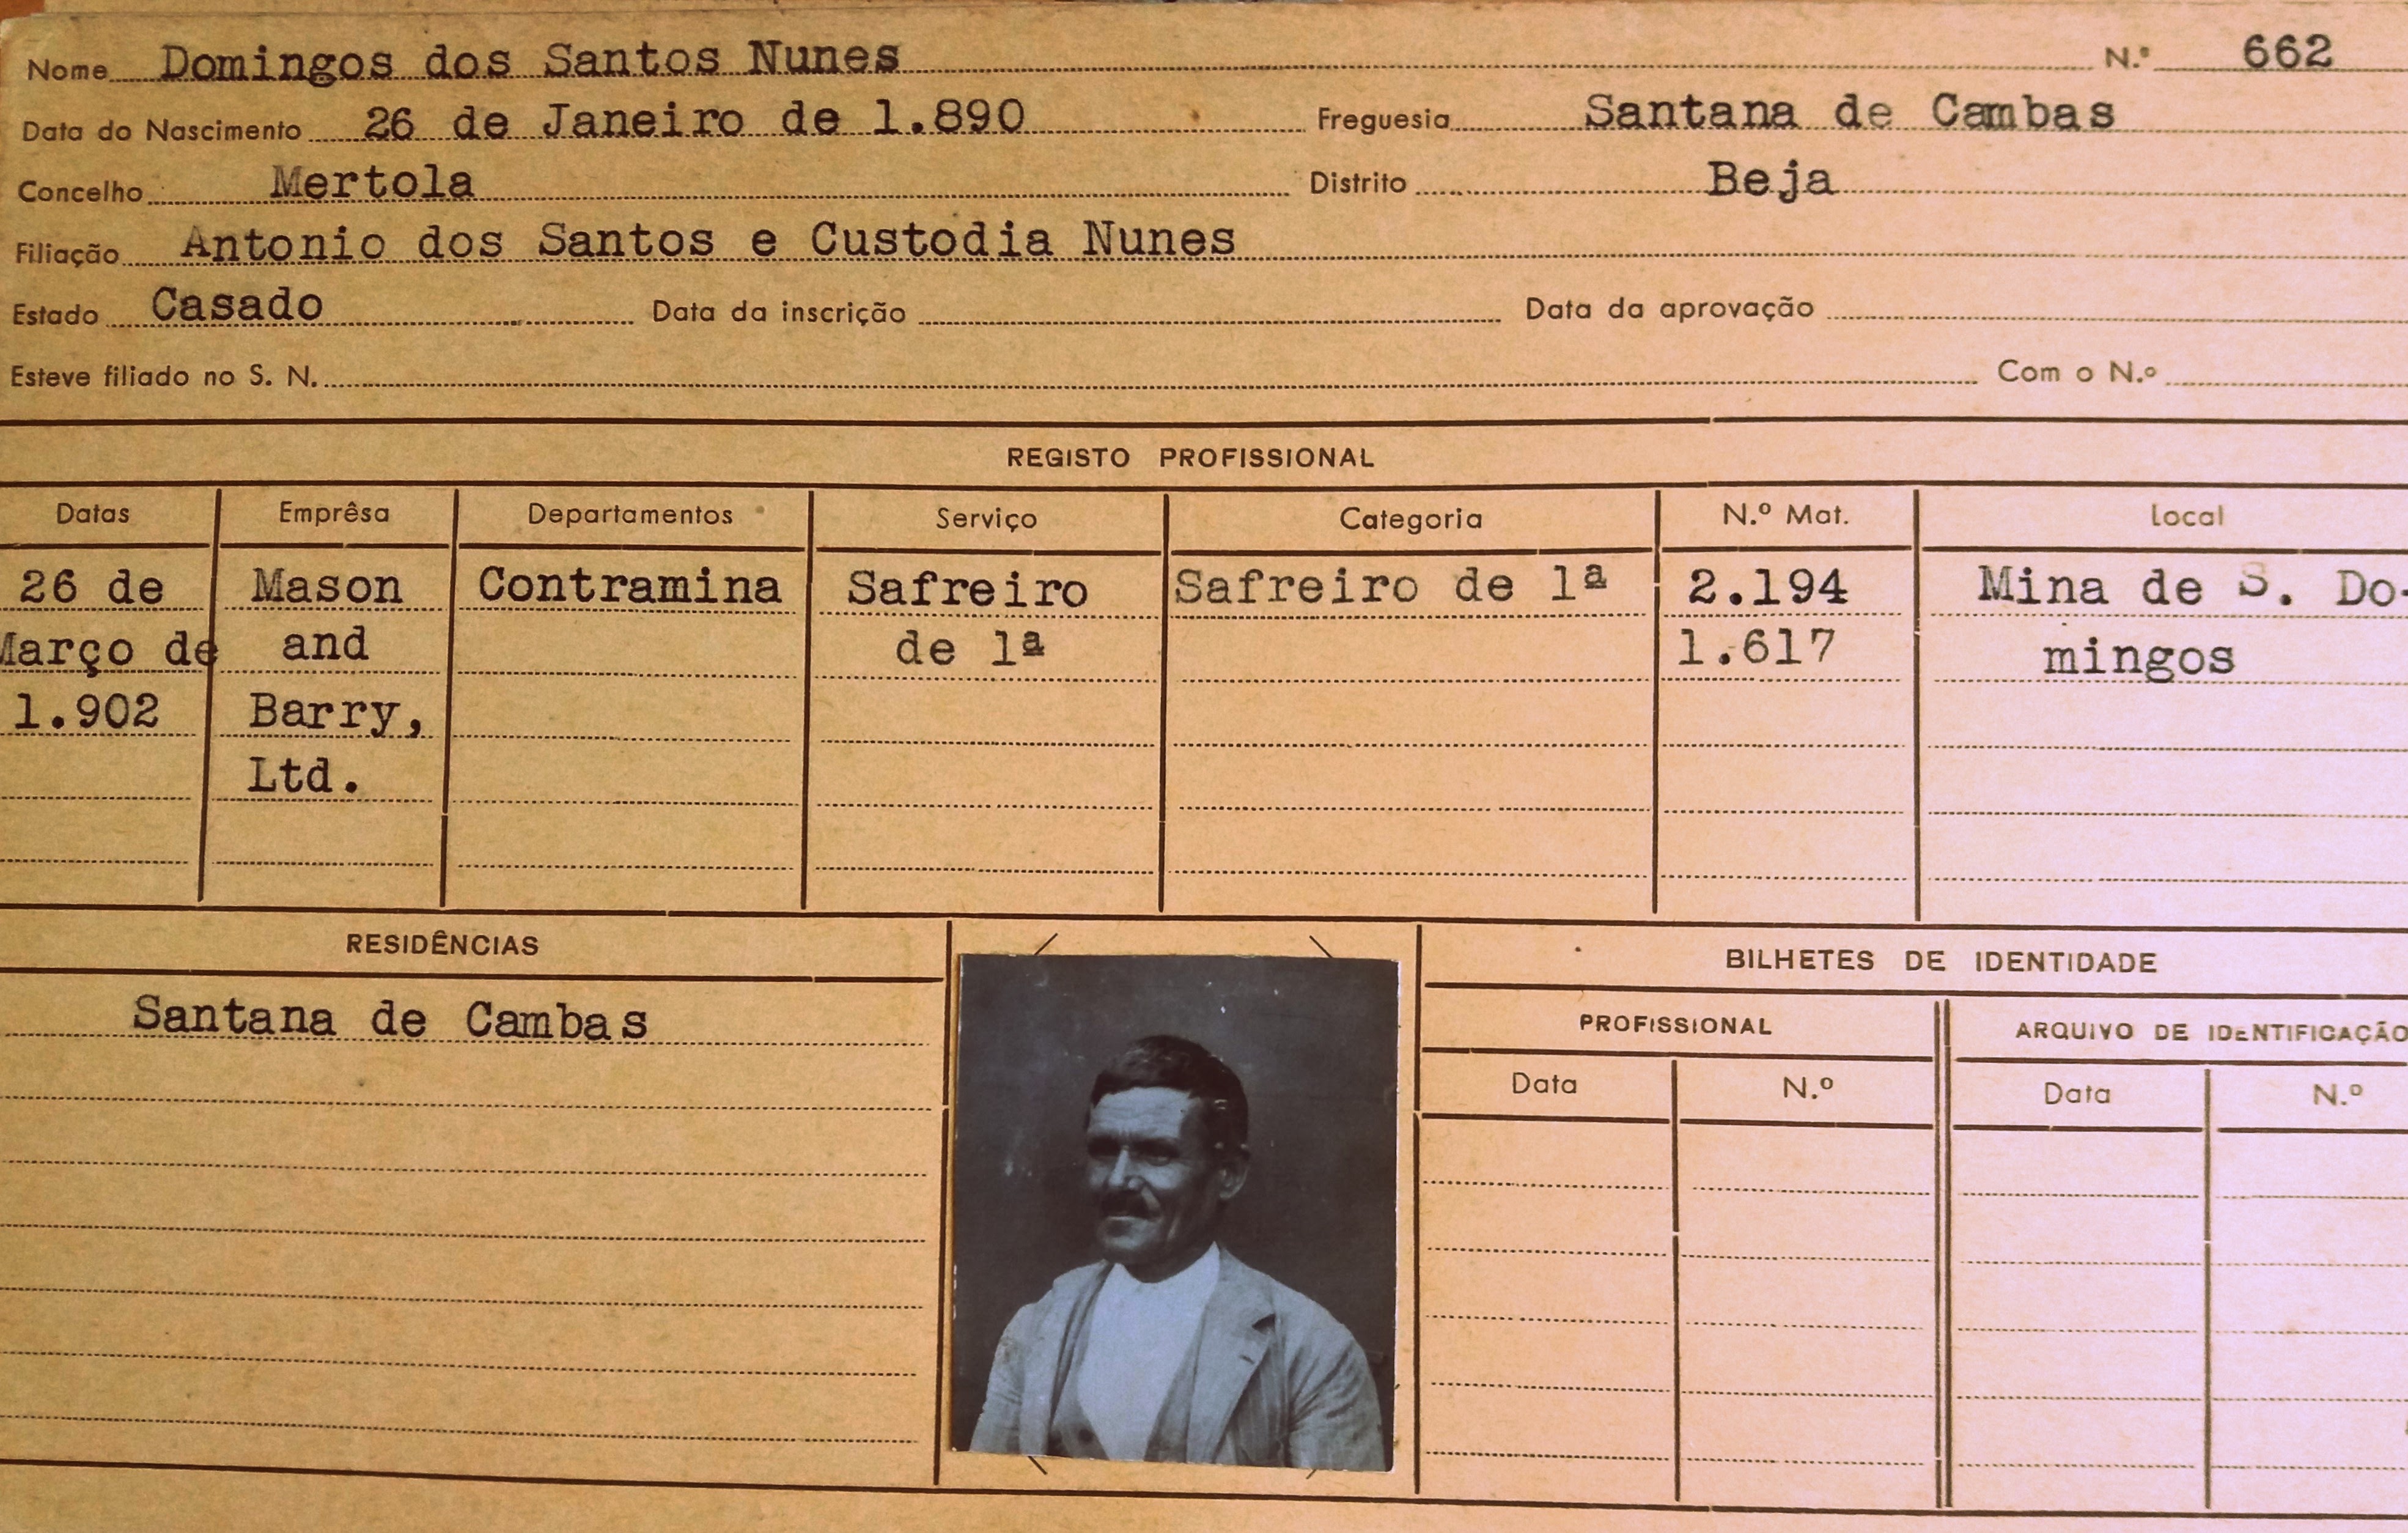 Nome Domingos dos Santos Nunes N.º 662
Data do Nascimento 26 de Janeiro de 1.890 Freguesia Santana de Cambas
Concelho Mertola Distrito Beja
Filiação Antonio dos Santos e Custodia Nunes
Estado Casado Data da inscrição Data da aprovação
Esteve filiado no S. N. Com o N.º
REGISTO PROFISSIONAL
Datas Emprêsa Departamentos Serviço Categoria N.º Mat. Local
26 de Mason Contramina Safreiro Safreiro de 1ª 2.194 Mina de S. Do-
Março de and de 1ª 1.617 mingos
1.902 Barry,
Ltd.
RESIDÊNCIAS
Santana de Cambas
BILHETES DE IDENTIDADE
PROFISSIONAL ARQUIVO DE IDENTIFICAÇÃO
Data N.º Data N.º